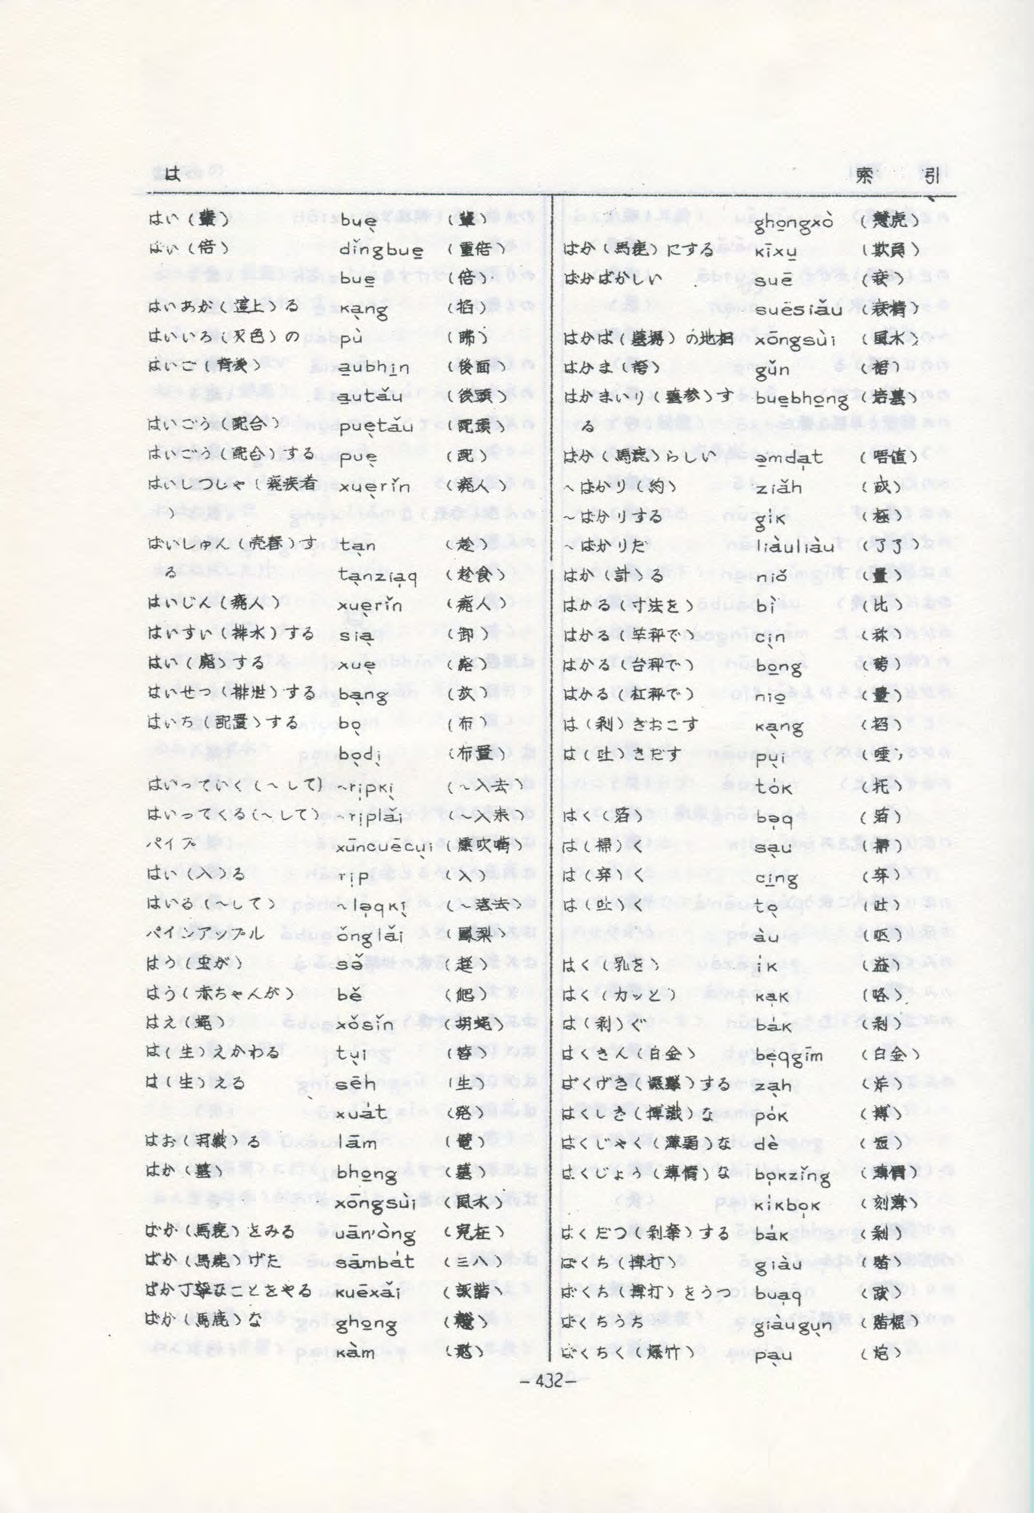 は
索 引
はい（輩） bue̱ （輩）
ばい（倍） dǐngbue̱ （重倍）
bue̱ （倍）
はいあが（這上）る ka̖ng （掐）
はいいろ（灰色）の pù （㫲）
はいご（背後） a̱ubhı̱n （後面）
a̱utǎu （後頭）
はいごう（配合） pue̖tǎu （配頭）
はいごう（配合）する pue̖ （配）
はいしつしゃ（廃疾者 xue̖rǐn （廃人）
）
はいしゅん（売春）す ta̖n （趁）
る ta̖nzia̩q （趁食）
はいじん（廃人） xue̖rǐn （廃人）
はいすい（排水）する sia̖ （卸）
はい（廃）する xue̖ （廃）
はいせつ（排泄）する ba̖ng （放）
はいち（配置）する bo̖ （布）
bo̖di̖ （布置）
はいっていく（～して） ~ri̍pki̖ （～入去）
はいってくる（～して） ~ri̍plǎi （～入来）
パイプ xūncuēcu̖i （薫吹嘴）
はい（入）る ri̍p （入）
はいる（～して） ~la̍qki̖ （～落去）
パインアップル ǒnglǎi （鳳梨）
はう（虫が） sǒ （趖）
はう（赤ちゃんが） bě
はえ（蝿） xǒsǐn （胡蝿）
は（生）えかわる tu̖i
は（生）える sēh （生）
xua̍t （発）
はお（羽織）る lām
はか（墓） bho̱ng （墓）
xōngsùi （風水）
ばか（馬鹿）とみる uān'òng （冤枉）
ばか（馬鹿）げた sāmba̍t （三八）
ばか丁寧なことをやる kuēxǎi （詼諧）
ばか（馬鹿）な gho̱ng
kàm
gho̱ngxò
ばか（馬鹿）にする kīxu̱ （欺負）
ばかばかしい suē （衰）
suēsiǎu （衰精）
はかば（墓場）の地相 xōngsùi （風水）
はかま（袴） gǔn （裙）
はかまいり（墓参）す bue̱bho̱ng （培墓）
る
ばか（馬鹿）らしい a̱mda̍t （唔値）
～ばかり（約） ziǎh （成）
～ばかりする gi̍k （極）
～ばかりだ liàuliàu （了了）
はか（計）る niǒ （量）
はかる（寸法を） bì （比）
はかる（竿秤で） ci̖n （秤）
はかる（台秤で） bo̱ng （磅）
はかる（杠秤で） nio̱ （量）
は（剥）ぎおこす ka̖ng
は（吐）きだす pu̖i
tòk （托）
はく（箔） ba̍q （箔）
は（掃）く sa̖u （掃）
は（弃）く ci̱ng
は（吐）く to̖ （吐）
àu （呕）
はく（乳を） i̍k （益）
はく（カッと） ka̍k （咯）
は（剥）ぐ ba̍k （剥）
はくきん（白金） be̍qgīm （白金）
ばくげき（爆撃）する za̖h
はくしき（博識）な po̍k （博）
はくじゃく（薄弱）な dè
はくじょう（薄情）な bo̍kzǐng （薄情）
ki̍kbo̍k （刻薄）
はくだつ（剥奪）する ba̍k （剥）
ばくち（博打） giàu （賭）
ばくち（博打）をうつ bua̍q （跋）
ばくちうち giàugu̖n （賭棍）
ばくちく（爆竹） pa̖u （炮）
-432-